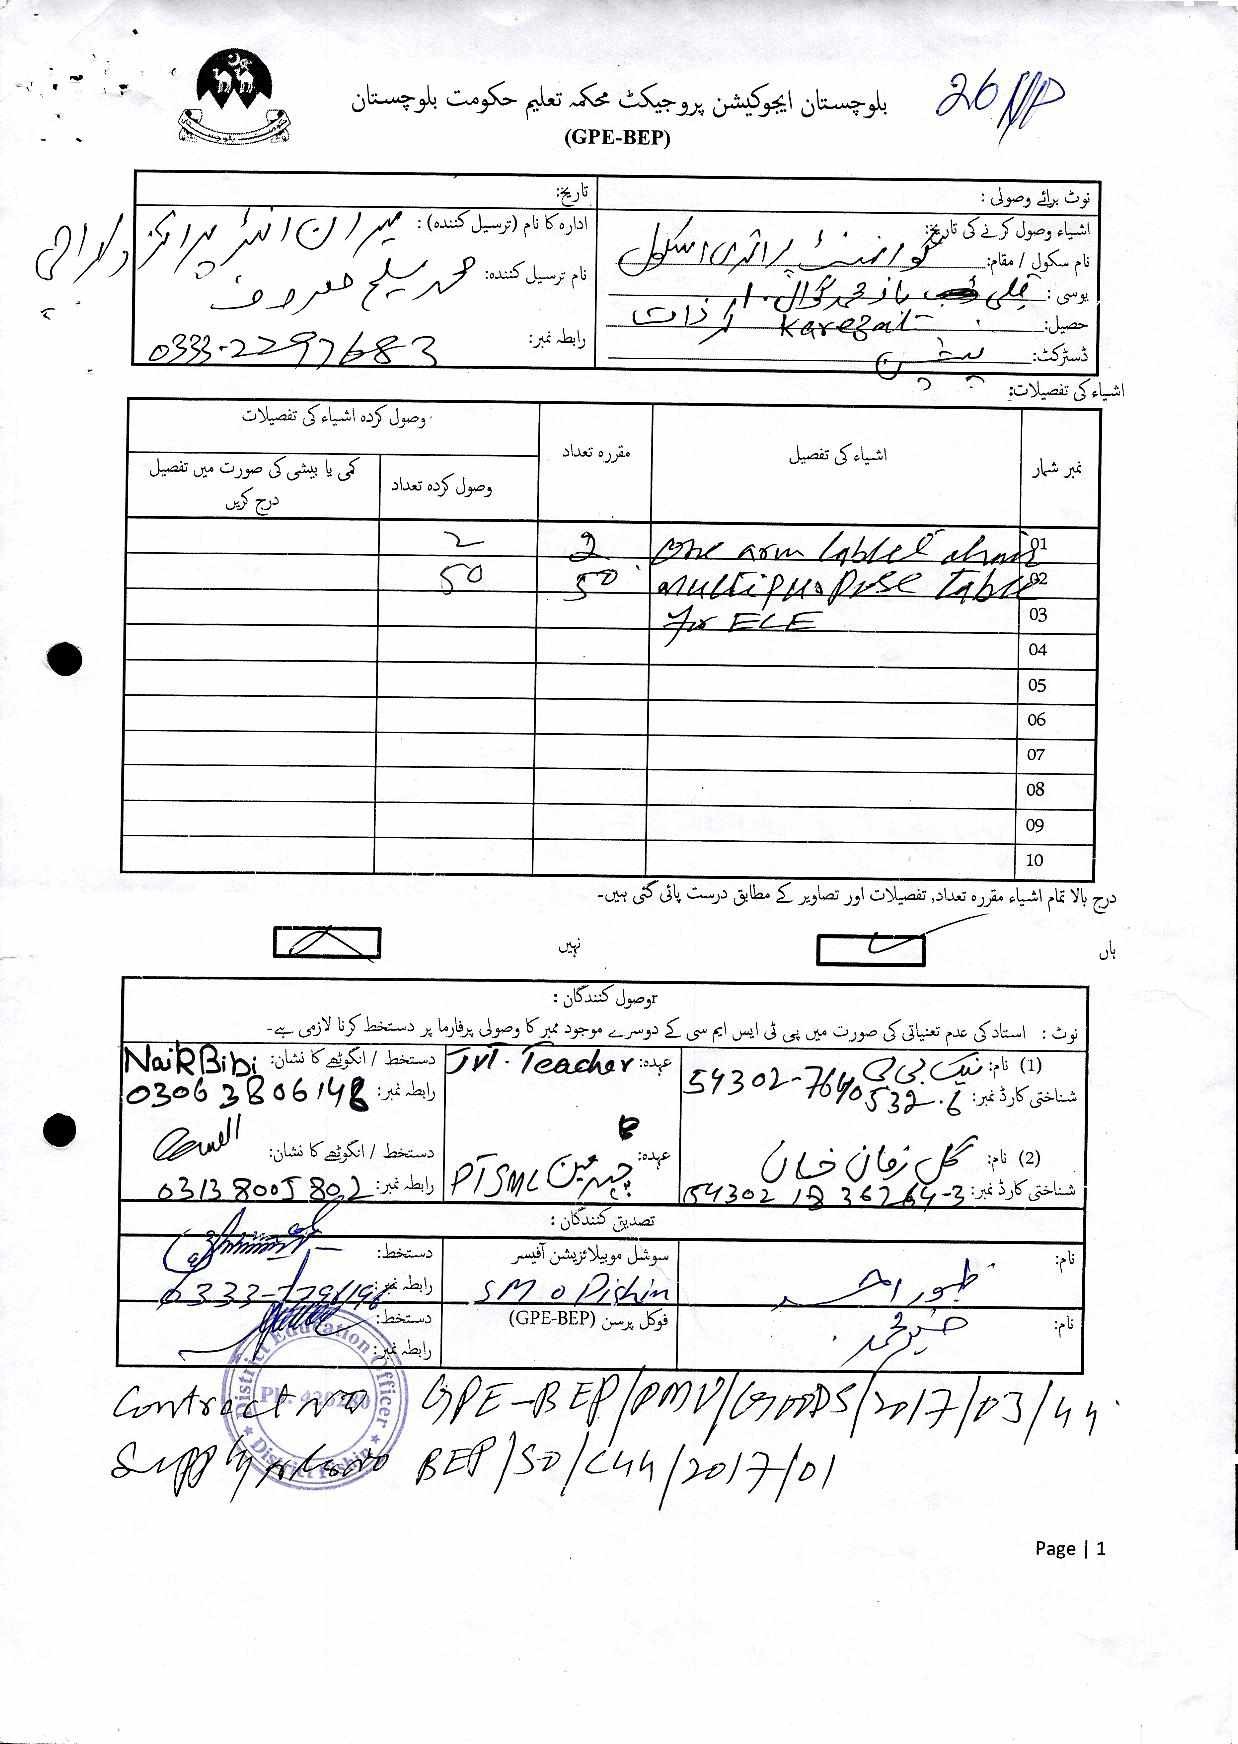 26 NP
بلوچستان ایجوکیشن پروجیکٹ محکمہ تعلیم حکومت بلوچستان
(GPE-BEP)
نوٹ برائے وصولی :
تاریخ:
اشیاء وصول کرنے کی تاریخ:
نام سکول / مقام: گورنمنٹ پرائمری اسکول
یوسی : کلی باز محمد
حصیل: Karezat کاریزات
ڈسٹرکٹ: پشین
ادارہ کا نام (ترسیل کنندہ) : مہران انٹر پرائزز کراچی
نام ترسیل کنندہ: محمد سلیم معروف
رابطہ نمبر: 0333-2297683
اشیاء کی تفصیلات:
نمبر شمار اشیاء کی تفصیل مقررہ تعداد وصول کردہ اشیاء کی تفصیلات
وصول کردہ تعداد کمی یا بیشی کی صورت میں تفصیل درج کریں
01 one arm chair 2 2
02 multipurpose table 50 50
03 for ECE
04
05
06
07
08
09
10
درج بالا تمام اشیاء مقررہ تعداد, تفصیلات اور تصاویر کے مطابق درست پائی گئی ہیں۔
ہاں نہیں
وصول کنندگان :
نوٹ : استاد کی عدم تعیناتی کی صورت میں پی ٹی ایس ایم سی کے دوسرے موجود ممبر کا وصولی پرفارما پر دستخط کرنا لازمی ہے۔
(1) نام: نیک بی بی عہدہ: JVT. Teacher دستخط / انگوٹھے کا نشان: Naik Bibi
شناختی کارڈ نمبر: 54302-7640532-6 رابطہ نمبر: 03063806148
(2) نام: گل زمان خان عہدہ: چیئرمین PTSMC دستخط / انگوٹھے کا نشان:
شناختی کارڈ نمبر: 54302 1836264-3 رابطہ نمبر: 03138005802
تصدیق کنندگان :
نام: ظہور احمد سوشل موبیلائزیشن آفیسر دستخط:
SMO Pishin رابطہ نمبر:
نام: فوکل پرسن (GPE-BEP) دستخط:
رابطہ نمبر:
District Education Officer
District Pishin
Contract no GPE-BEP/PMU/GOODS/2017/03/44
Supply order no BEP/SO/C44/2017/01
Page | 1